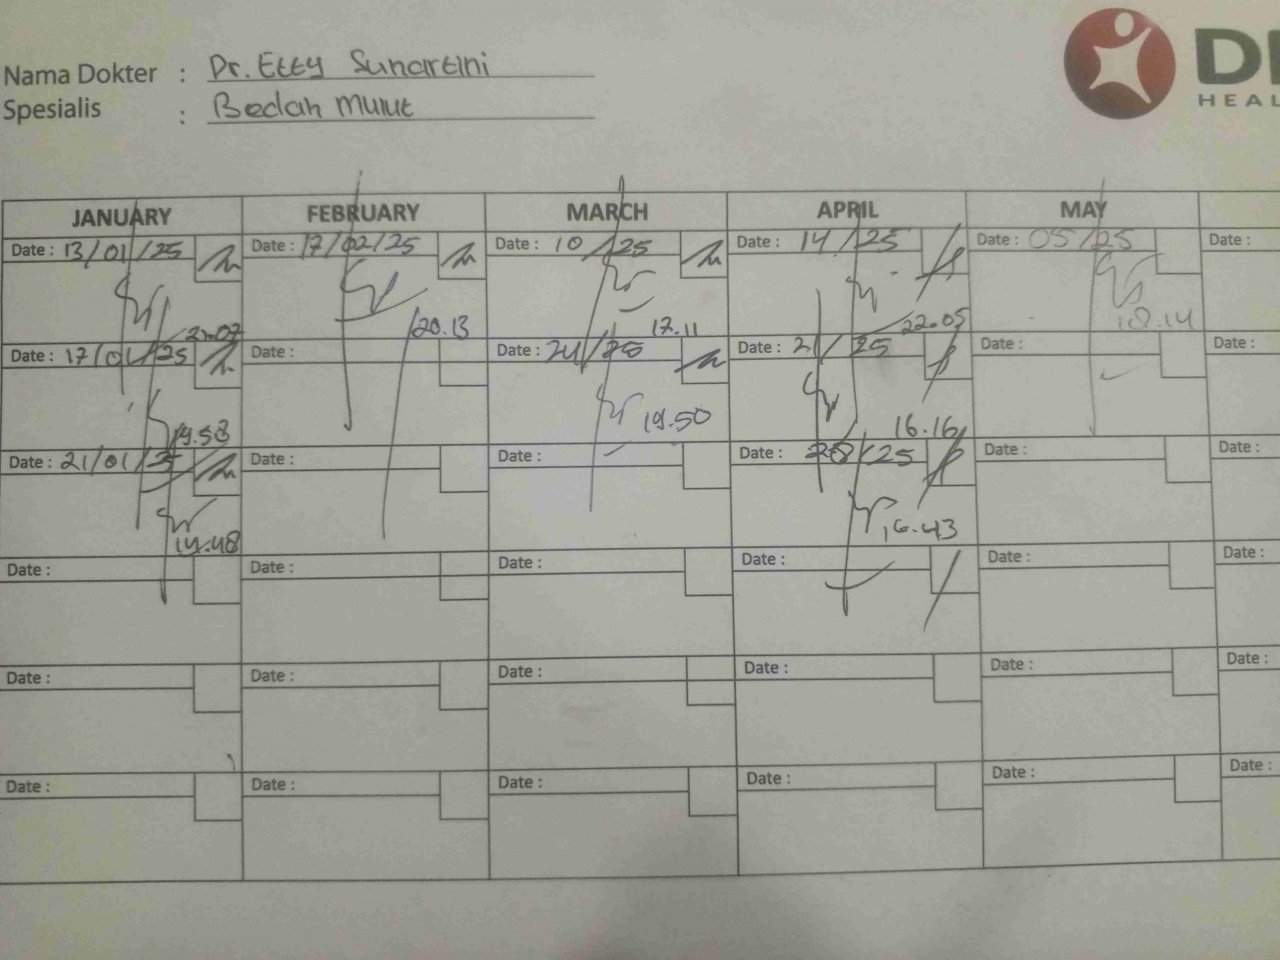 Nama Dokter : Dr. Etty Sunartini
Spesialis : Bedah Mulut
HEAL
JANUARY FEBRUARY MARCH APRIL MAY
Date : 13/01/25 Date : 17/02/25 Date : 10 /25 Date : 14 /25 Date : 05/25 Date :
20.13 17.11 22.05 18.14
Date : 17/01/25 Date : Date : 24/25 Date : 21/25 Date : Date :
19.58 19.50 16.16
Date : 21/01/25 Date : Date : Date : 28/25 Date : Date :
14.48 16.43
Date : Date : Date : Date : Date : Date :
Date : Date : Date : Date : Date : Date :
Date : Date : Date : Date : Date : Date :